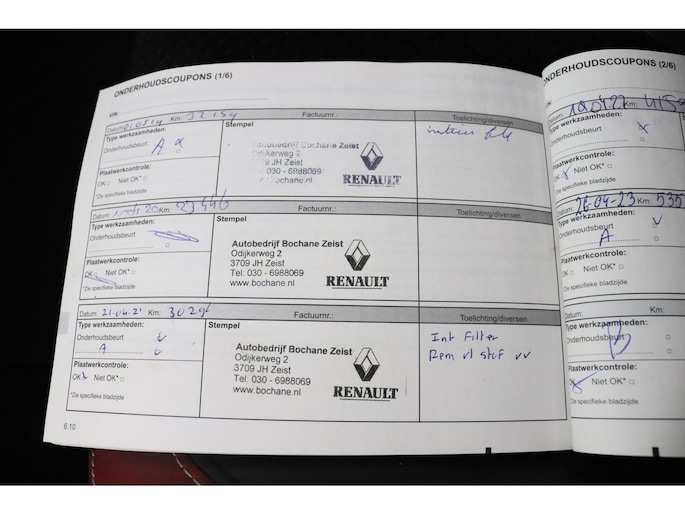 ONDERHOUDSCOUPONS (1/6)
VIN:
Datum: Km: Factuurnr.: Toelichting/diversen
Type werkzaamheden: Stempel
Onderhoudsbeurt
A
Autobedrijf Bochane Zeist
Odijkerweg 2
3709 JH Zeist
030 - 6988069
bochane.nl
RENAULT
Plaatwerkcontrole:
OK □ Niet OK* □
*Zie specifieke bladzijde
Datum: Km: 23446 Factuurnr.: Toelichting/diversen
Type werkzaamheden: Stempel
Onderhoudsbeurt
Autobedrijf Bochane Zeist
Odijkerweg 2
3709 JH Zeist
Tel: 030 - 6988069
www.bochane.nl
RENAULT
Plaatwerkcontrole:
OK □ Niet OK* □
*Zie specifieke bladzijde
Datum: 21-04-21 Km: Factuurnr.: Toelichting/diversen
Type werkzaamheden: Stempel
Onderhoudsbeurt
A
Autobedrijf Bochane Zeist
Odijkerweg 2
3709 JH Zeist
Tel: 030 - 6988069
www.bochane.nl
RENAULT
Int Filter
Rem vl stof vv
Plaatwerkcontrole:
OK Niet OK* □
*Zie specifieke bladzijde
6.10
ONDERHOUDSCOUPONS (2/6)
VIN:
Datum: Km:
Type werkzaamheden:
Onderhoudsbeurt
Plaatwerkcontrole:
OK Niet OK* □
*Zie specifieke bladzijde
Datum: 26-04-23 Km: 535
Type werkzaamheden:
Onderhoudsbeurt
A
Plaatwerkcontrole:
OK □ Niet OK* □
*Zie specifieke bladzijde
Datum: Km:
Type werkzaamheden:
Onderhoudsbeurt
Plaatwerkcontrole:
OK Niet OK* □
*Zie specifieke bladzijde